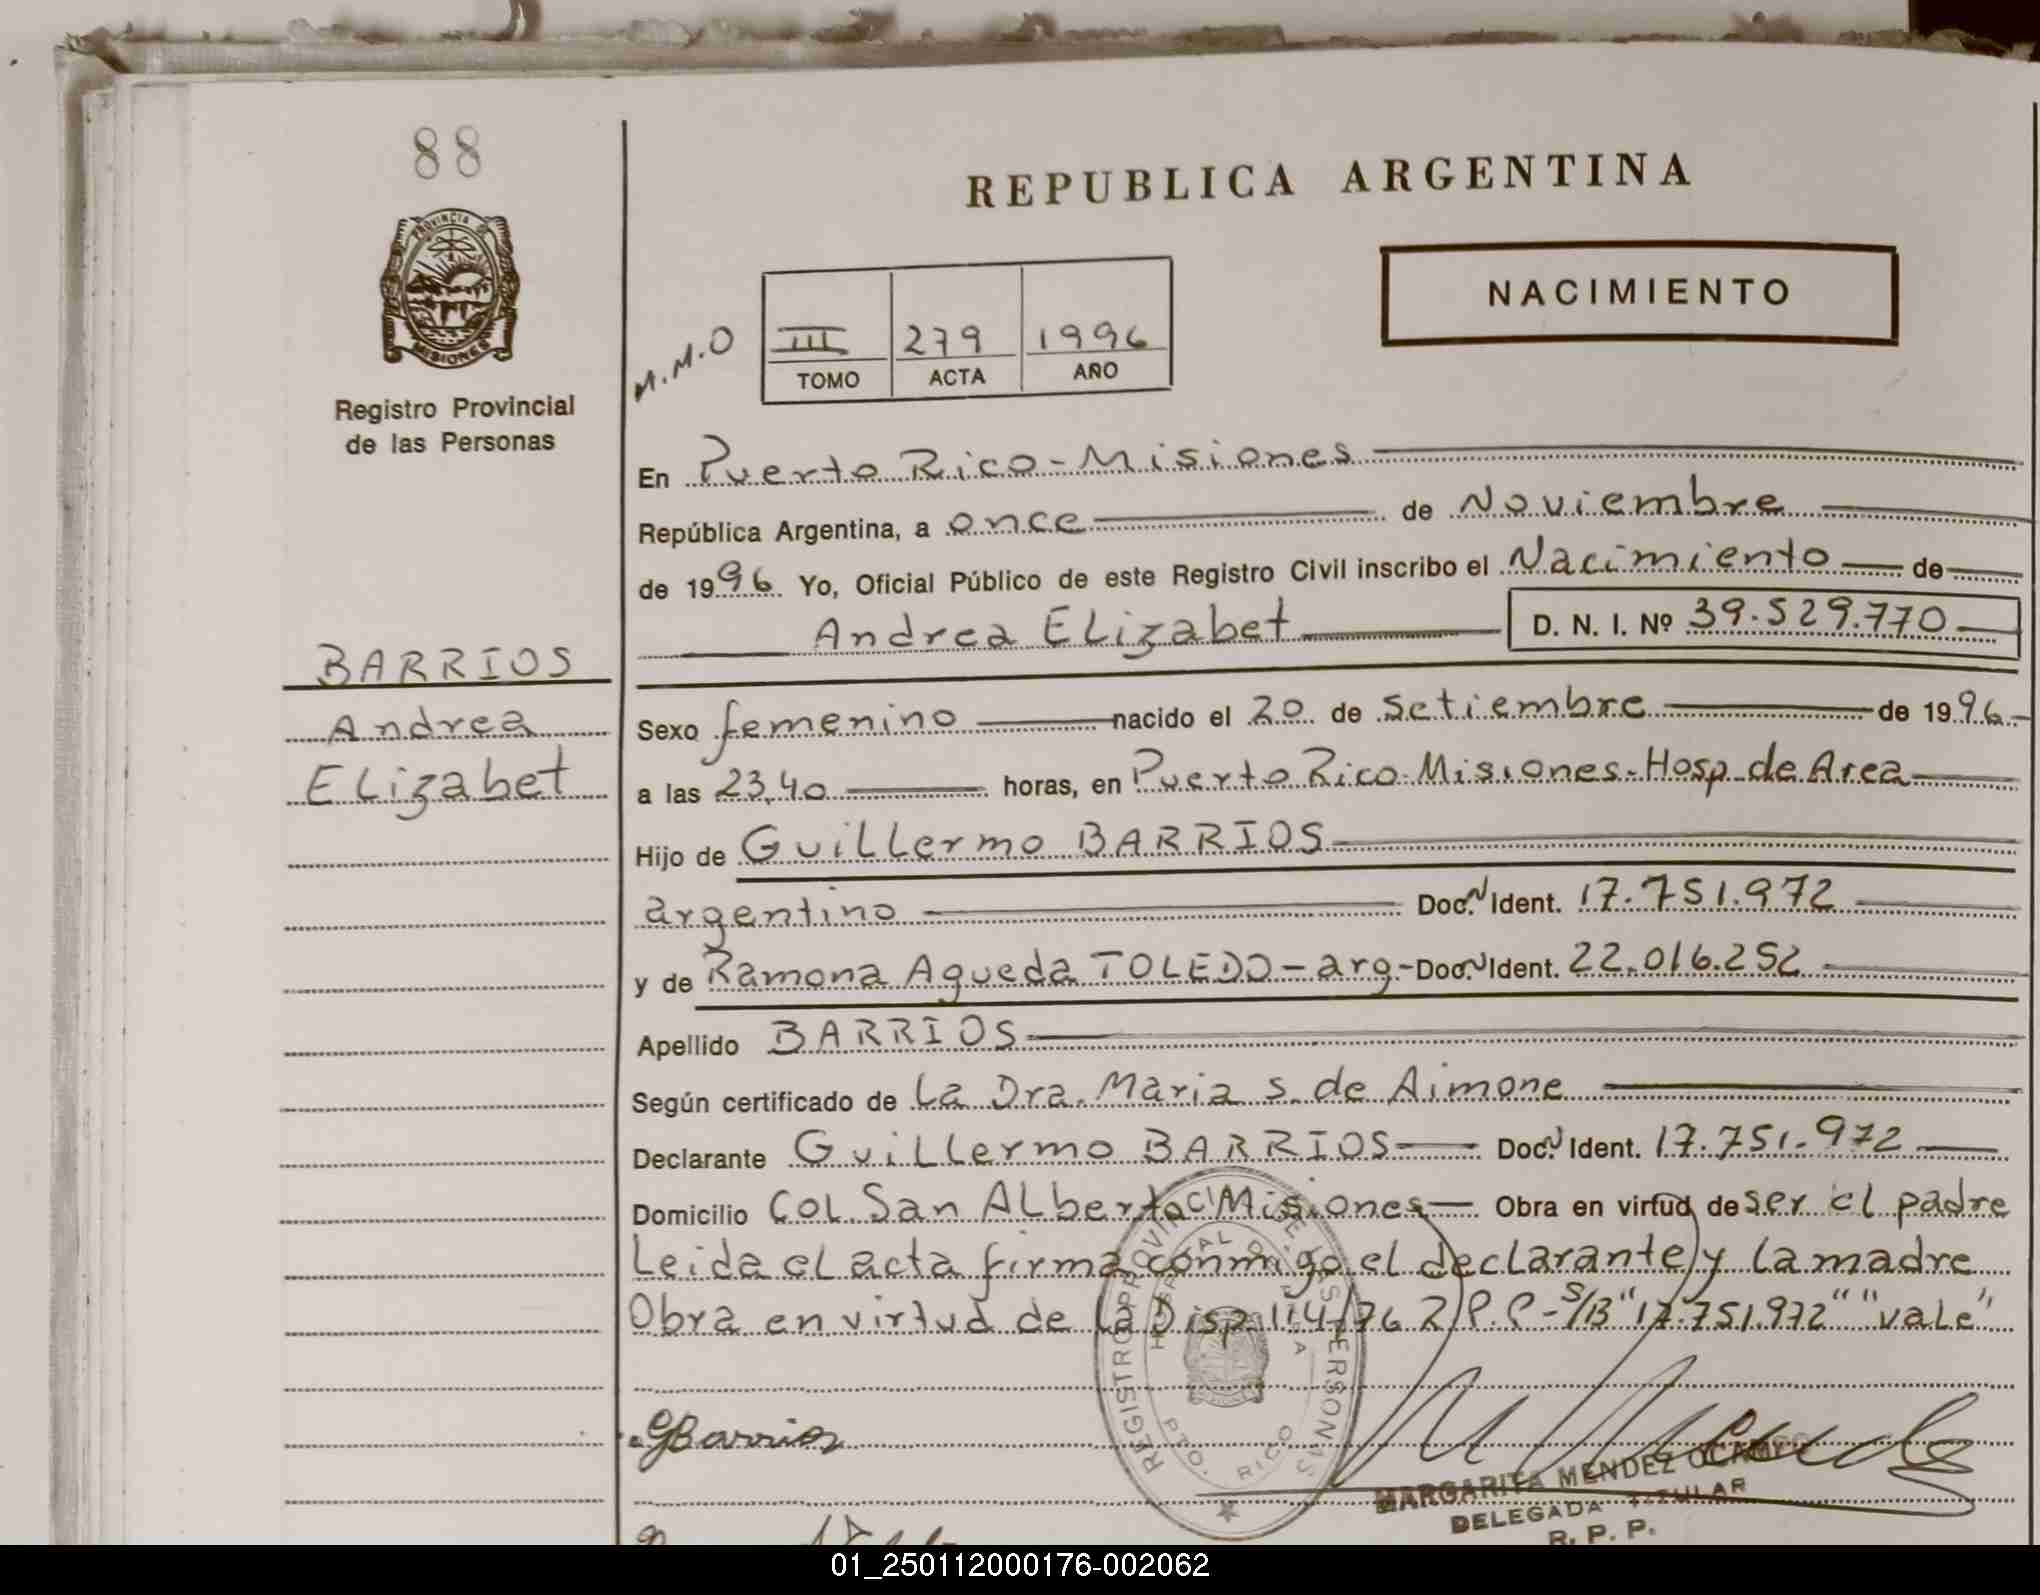 88
PROVINCIA DE
MISIONES
Registro Provincial
de las Personas
BARRIOS
Andrea
Elizabet
REPUBLICA ARGENTINA
NACIMIENTO
M.M.O
III 279 1996
TOMO ACTA AÑO
En Puerto Rico - Misiones
República Argentina, a once de Noviembre
de 1996 Yo, Oficial Público de este Registro Civil inscribo el Nacimiento de
Andrea Elizabet D. N. I. Nº 39.529.770
Sexo femenino nacido el 20 de Setiembre de 1996
a las 23,40 horas, en Puerto Rico Misiones - Hosp. de Area
Hijo de Guillermo BARRIOS
argentino Doc. N Ident. 17.751.972
y de Ramona Agueda TOLEDO - arg - Doc. N Ident. 22.016.252
Apellido BARRIOS
Según certificado de La Dra. Maria S. de Aimone
Declarante Guillermo BARRIOS Doc. N Ident. 17.751.972
Domicilio Col. San Alberto Misiones Obra en virtud de ser el padre
Leida el acta firma conmigo el declarante y la madre
Obra en virtud de la Disp. 114/76 R.P.P - S/B "17.751.972" "vale"
REGISTRO PROVINCIAL DE LAS PERSONAS
PTO. RICO
GBarrios
MARGARITA MENDEZ OCAMPO
DELEGADA TITULAR
R. P. P.
01_250112000176-002062